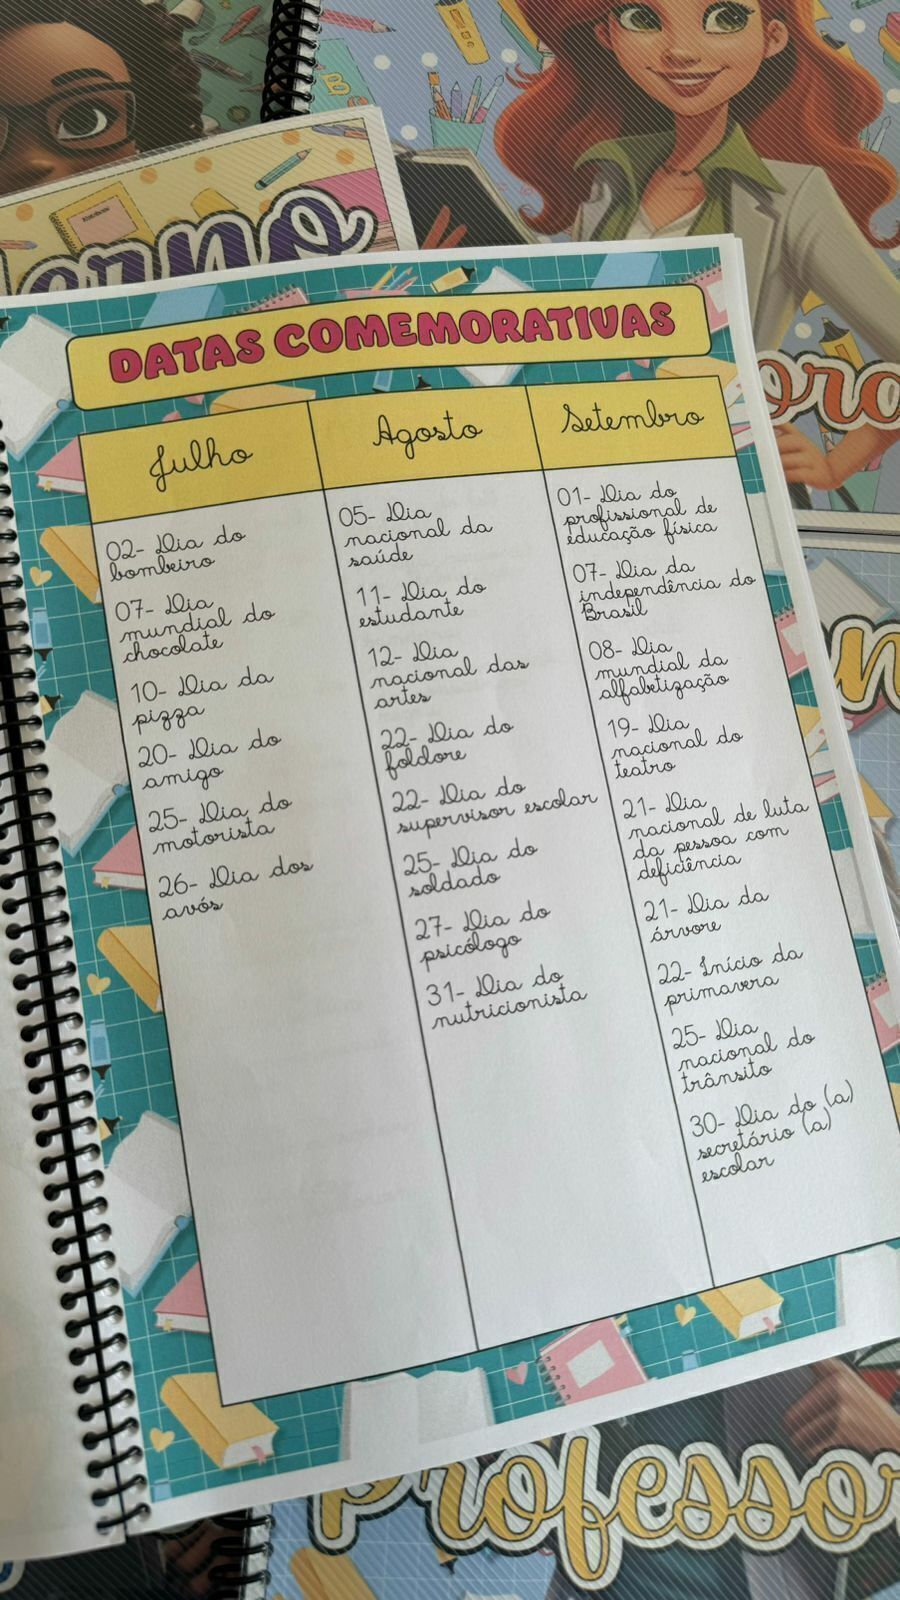 erno
ora
DATAS COMEMORATIVAS
Julho
02- Dia do
bombeiro
07- Dia
mundial do
chocolate
10- Dia da
pizza
20- Dia do
amigo
25- Dia do
motorista
26- Dia dos
avós
Agosto
05- Dia
nacional da
saúde
11- Dia do
estudante
12- Dia
nacional das
artes
22- Dia do
foldore
22- Dia do
supervisor escolar
25- Dia do
soldado
27- Dia do
psicólogo
31- Dia do
nutricionista
Setembro
01- Dia do
profissional de
educação física
07- Dia da
independência do
Brasil
08- Dia
mundial da
alfabetização
19- Dia
nacional do
teatro
21- Dia
nacional de luta
da pessoa com
deficiência
21- Dia da
árvore
22- Início da
primavera
25- Dia
nacional do
trânsito
30- Dia do (a)
secretário (a)
escolar
professor